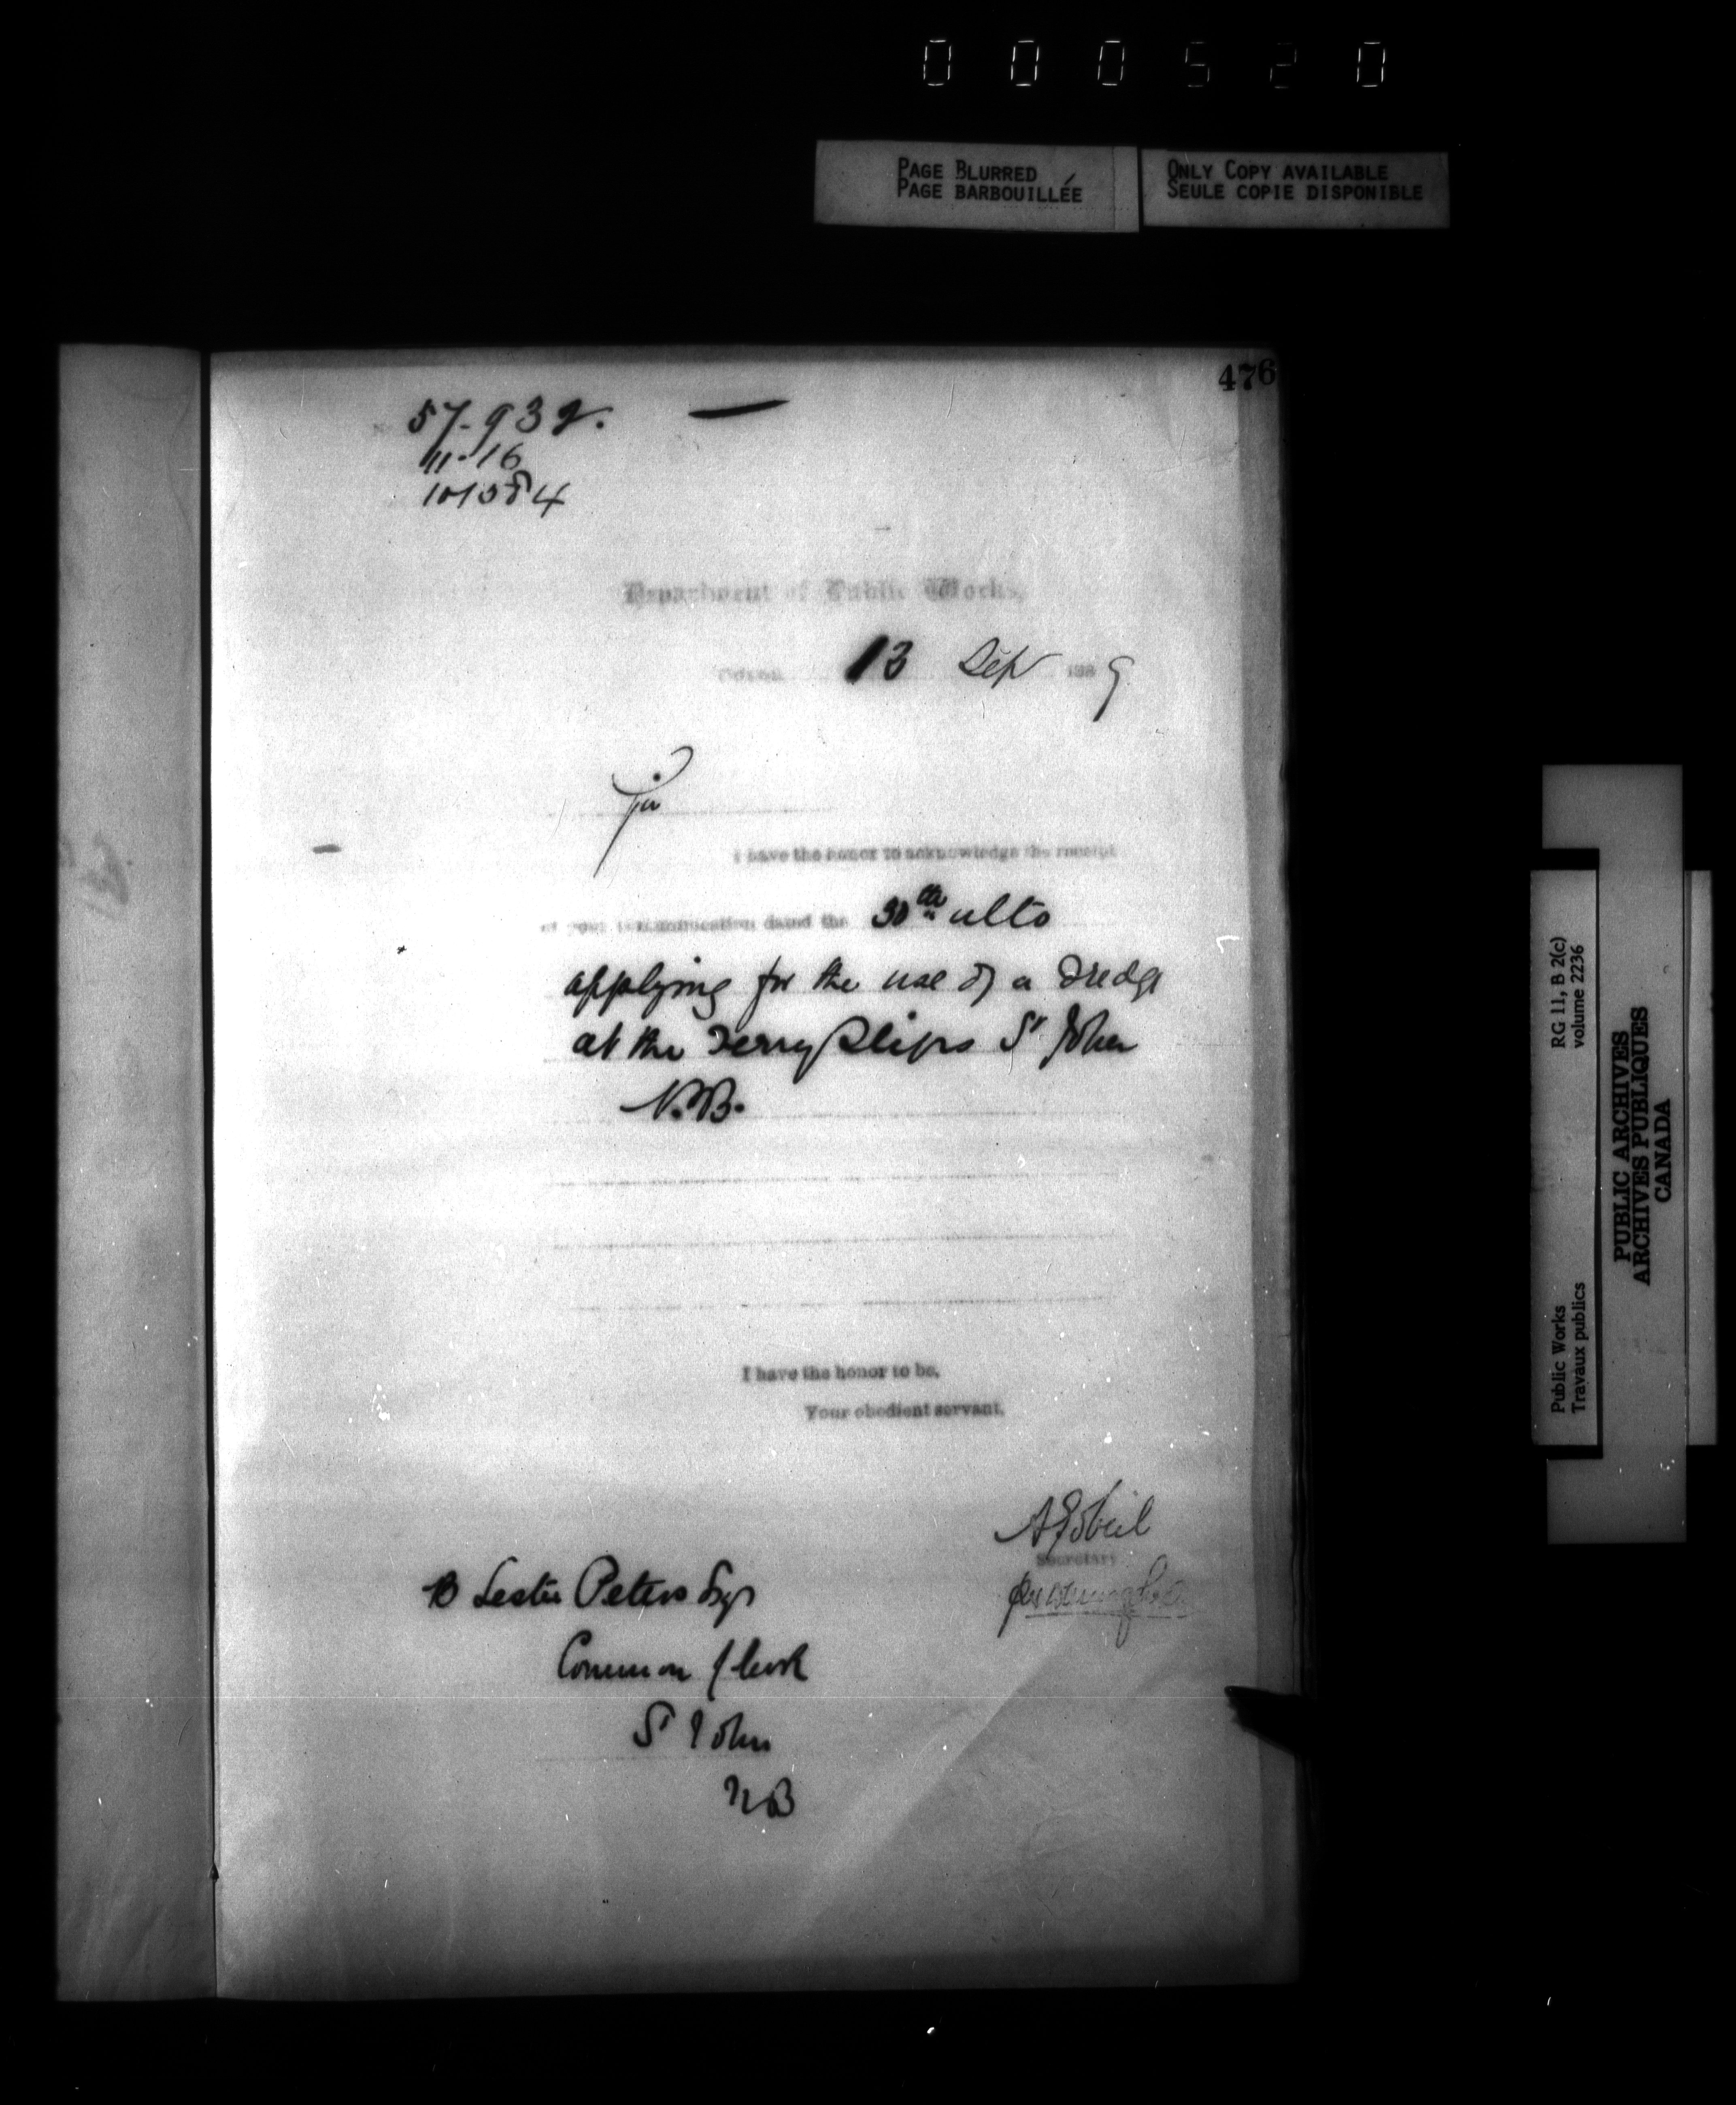 000520
PAGE BLURRED
PAGE BARBOUILLÉE
ONLY COPY AVAILABLE
SEULE COPIE DISPONIBLE
476
57-932.
11-16
101584
Department of Public Works,
Ottawa 13 Sep 1889
Sir
I have the honor to acknowledge the receipt
of your communication dated the 30th ulto
applying for the use of a Dredge
at the Ferry Slips St John
N.B.
I have the honor to be,
Your obedient servant,
A Gobeil
Secretary
B Lester Peters Esqr
Common Clerk
St John
NB
Public Works
Travaux publics
RG 11, B 2(c)
volume 2236
PUBLIC ARCHIVES
ARCHIVES PUBLIQUES
CANADA